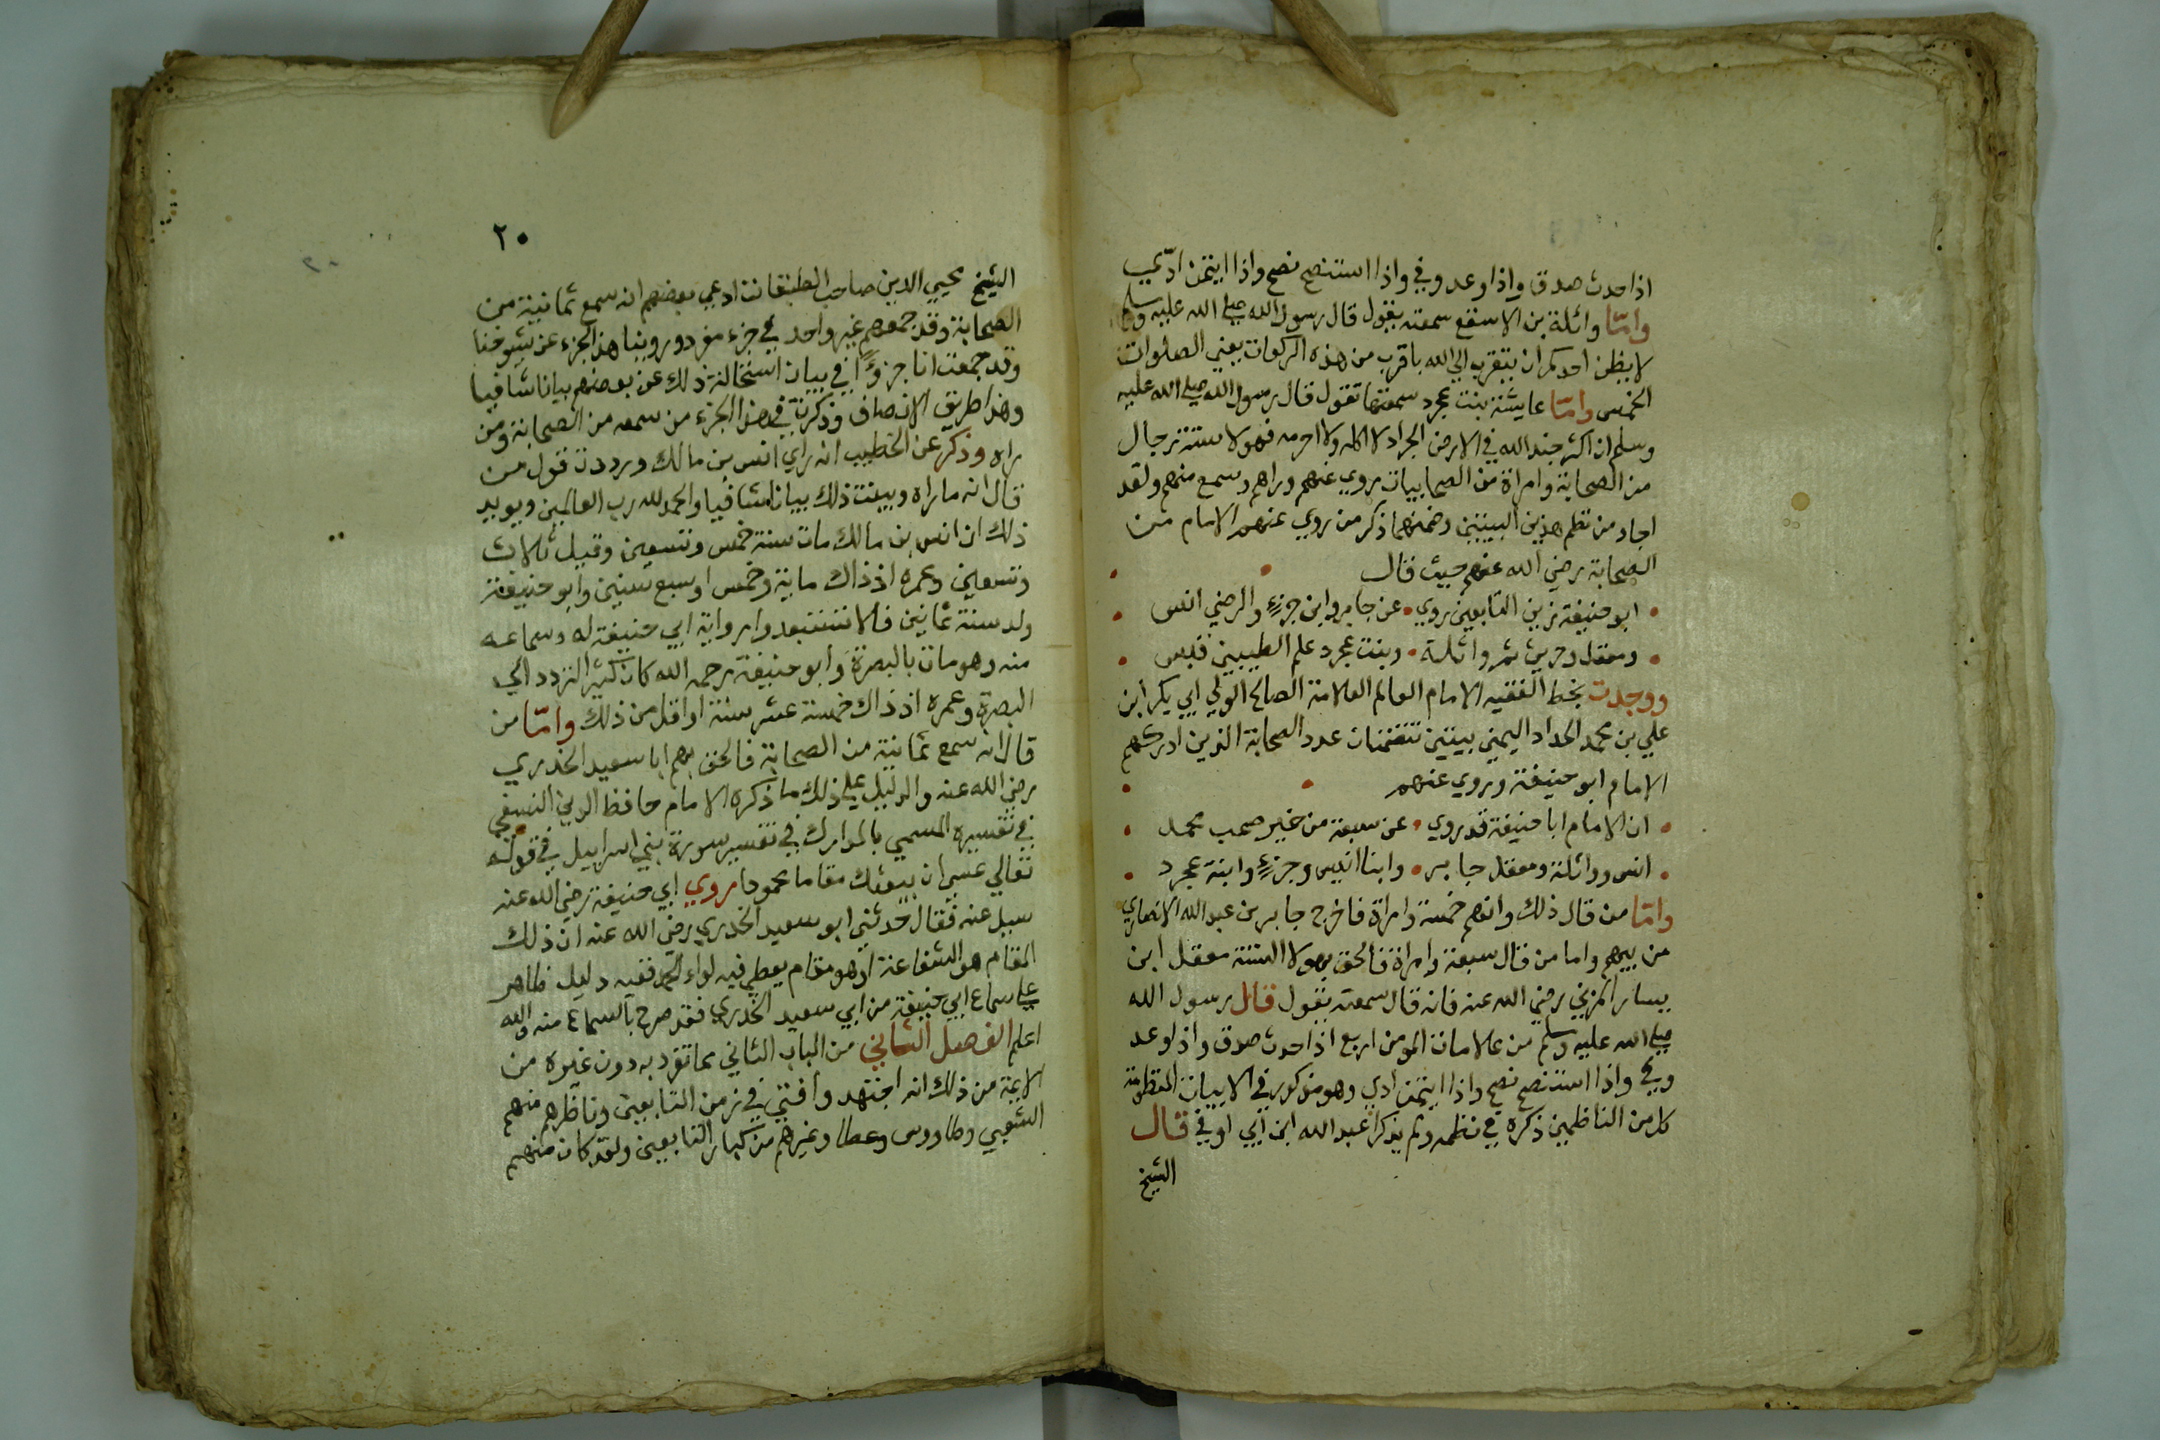 اذا حدث صدق واذا وعد وفي واذا استنصح نصح واذا ايتمن ادي
وامّا واثلة بن الاسقع سمعته يقول قال رسول الله صلي الله عليه وسلم
لا يظن احدكم ان يتقرب الي الله باقرب من هذه الركوات يعني الصلوات
الخمس وامّا عايشة بنت عجرد سمعتها تقول قال رسول الله صلي الله عليه
وسلم ان اكثر جند الله في الارض الجراد لا اكله ولا احرمه فهولا ستة رجال
من الصحابة وامراة من الصحابيات روي عنهم وراهم وسمع منهم ولقد
اجاد من نظم هذين البيتين وضمنهما ذكر من روي عنهم الامام من
الصحابة رضي الله عنهم حيث قال
ابو حنيفة زين التابعين روي • عن جابر وابن جزءٍ والرضي انس
ومعقل وحريث ثم واثلة • وبنت عجرد علم الطيبين قبس
ووجدت بخط الفقيه الامام العالم العلامة الصالح الولي ابي بكر ابن
علي بن محمد الحداد اليمني بيتين تتضمنان عدد الصحابة الذين ادركهم
الامام ابو حنيفة وروي عنهم
ان الامام ابا حنيفة قد روي • عن سبعة من خير صحب محمد
انس وواثلة ومعقل جابر • وابنا انيس وجزءٍ وابنة عجرد
وامّا من قال ذلك وانهم خمسة وامراة فاخرج جابر بن عبد الله الانصاري
من بينهم واما من قال سبعة وامراة فالحق بهولا الستة معقل ابن
يسار المزني رضي الله عنه فانه قال سمعته يقول قال رسول الله
صلي الله عليه وسلم من علامات المومن اربع اذا حدث صدق واذا وعد
وفي واذا استنصح نصح واذا ايتمن ادي وهو مذكور في الابيات المنظومة
كل من الناظمين ذكره في نظمه ولم يذكرا عبد الله ابن ابي اوفي قال
الشيخ
٢٠
الشيخ محيي الدين صاحب الطبقات ادعي بعضهم انه سمع ثمانية من
الصحابة وقد جمعهم غير واحد في جزء مفرد وروينا هذا الجزء عن شيوخنا
وقد جمعت انا جزؤًا في بيان استحالة ذلك عن بعضهم بيانا شافيا
وهذا طريق الانصاف وذكرت في هذا الجزء من سمعه من الصحابة ومن
راه وذكر عن الخطيب انه راي انس بن مالك ورددت قول من
قال انه ما راه وبينت ذلك بيانا شافيا والحمد لله رب العالمين ويويد
ذلك ان انس بن مالك مات سنة خمس وتسعين وقيل ثلاث
وتسعين وعمره اذ ذاك ماية وخمس او سبع سنين وابو حنيفة
ولد سنة ثمانين فلا تستبعدوا رواية ابي حنيفة له وسماعه
منه وهو مات بالبصرة وابو حنيفة رحمه الله كان كثير التردد الي
البصرة وعمره اذ ذاك خمسة عشر سنة او اقل من ذلك وامّا من
قال انه سمع ثمانية من الصحابة فالحق بهم ابا سعيد الخدري
رضي الله عنه والدليل علي ذلك ما ذكره الامام حافظ الدين النسفي
في تفسيره المسمي بالمدارك في تفسير سورة بني اسراييل في قوله
تعالي عسي ان يبعثك مقاما محمودا روي ابي حنيفة رضي الله عنه
سيل عنه فقال حدثني ابو سعيد الخدري رضي الله عنه ان ذلك
المقام هو الشفاعة او هو مقام يعطي فيه لواء الحمد ففيه دليل ظاهر
علي سماع ابي حنيفة من ابي سعيد الخدري فقد صرح بالسماع منه والله
اعلم الفصل الثاني من الباب الثاني مما تفرد به دون غيره من
الايمة من ذلك انه اجتهد وافتي في زمن التابعين وناظرهم منهم
الشعبي وطاووس وعطا وغيرهم من كبار التابعين ولقد كان منهم